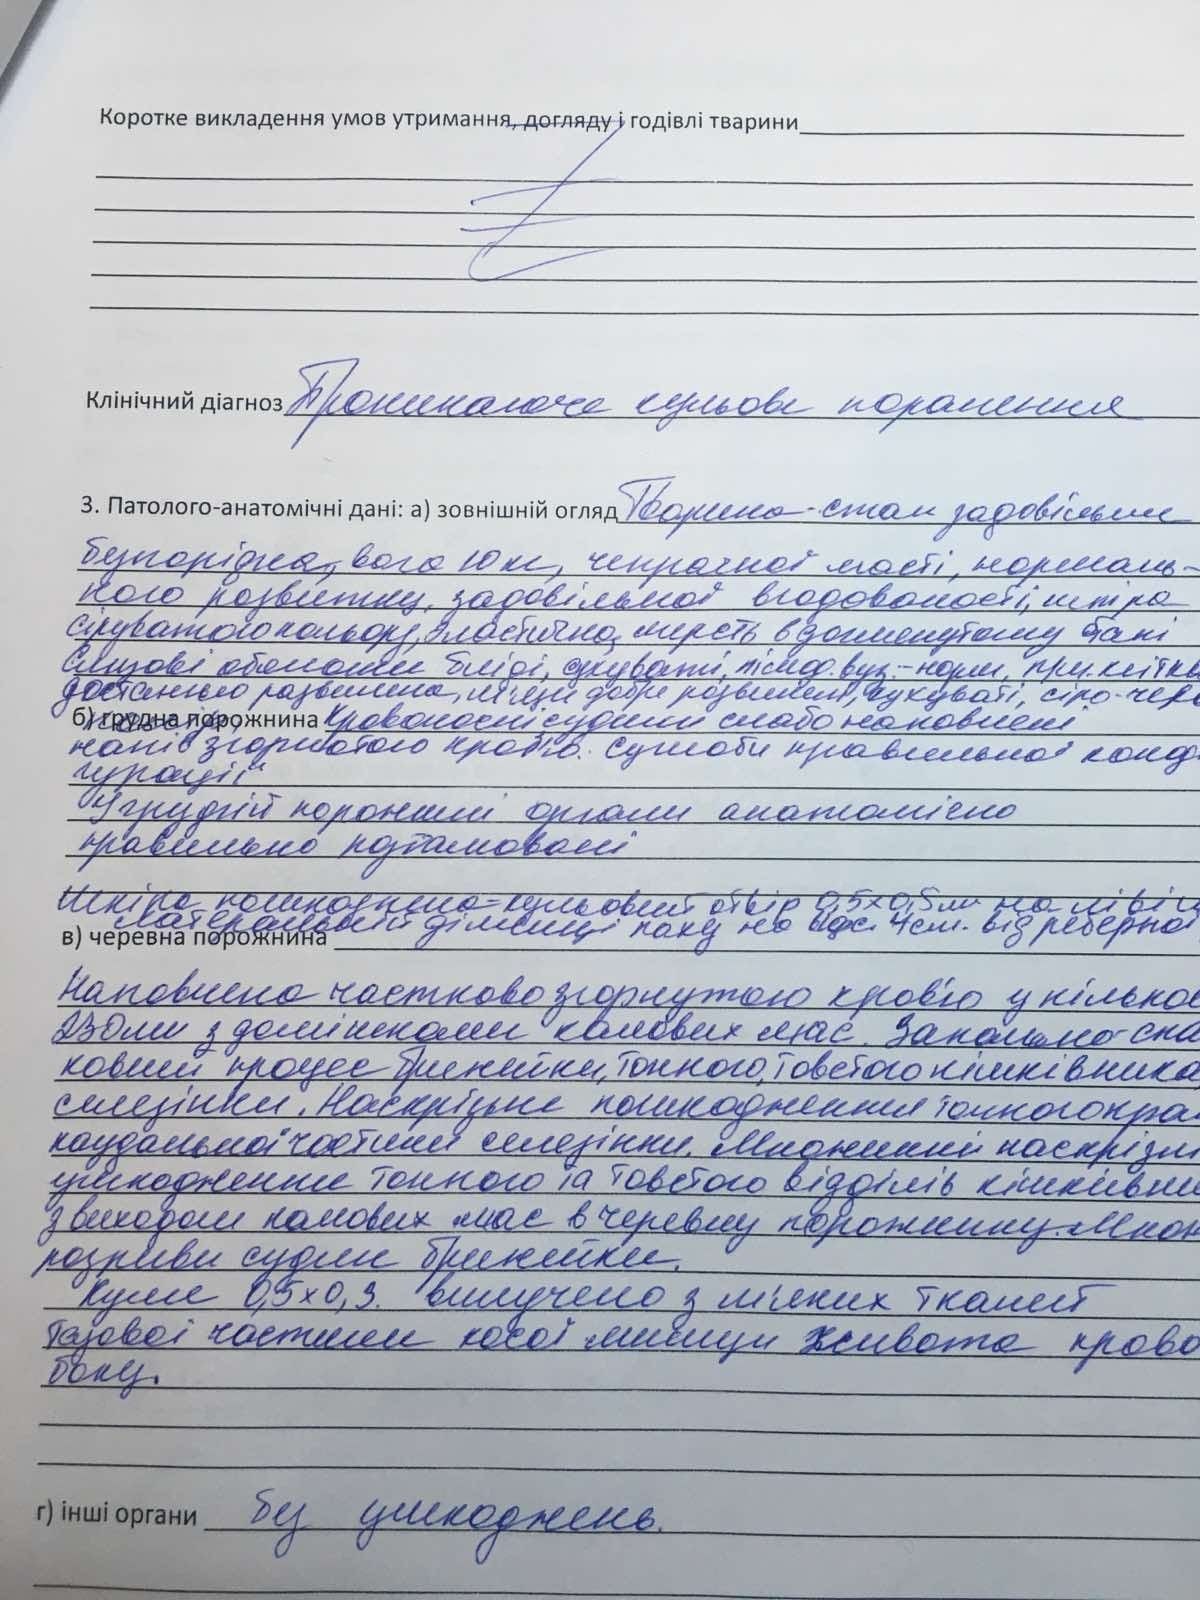 Коротке викладення умов утримання, догляду і годівлі тварини
Клінічний діагноз Проникаюче кульове поранення
3. Патолого-анатомічні дані: а) зовнішній огляд Тварина - стан задовільний
безпорідна, вага 10 кг, чепрачної масті, нормаль-
ного розвитку, задовільної вгодованості, шкіра
сіруватого кольору, еластична, шерсть в доглянутому стані
Слизові оболонки бліді,
достатньо розвинена, м'язи добре розвинені, пукуваті, сіро-черв
б) грудна порожнина Кровоносні судини слабо наповнені
напівзгорнутою кров'ю. Суглоби правильної конф-
гурації
У грудній порожнині органи анатомічно
правильно розташовані
Шкіра пошкоджена - кульовий отвір 0,5х0,5 на лівій
латеральній ділянці паху на 4см. від реберної
в) черевна порожнина
Наповнена частково згорнутою кров'ю у кількос
230мл з домішками калових мас. Запально спа
ковий процес брижейки, тонкого, товстого кишківника
селезінки. Наскрізне пошкодження тонкого кра
каудальної частини селезінки. Множинні наскрізні
ушкодження тонкого та товстого відділів кишківни
з виходом калових мас в черевну порожнину. Множ
розриви судин брижейки.
Куля 0,5х0,3. вилучено з м'яких тканей
тазової частини косої мишци живота право
боку.
г) інші органи без ушкоджень.